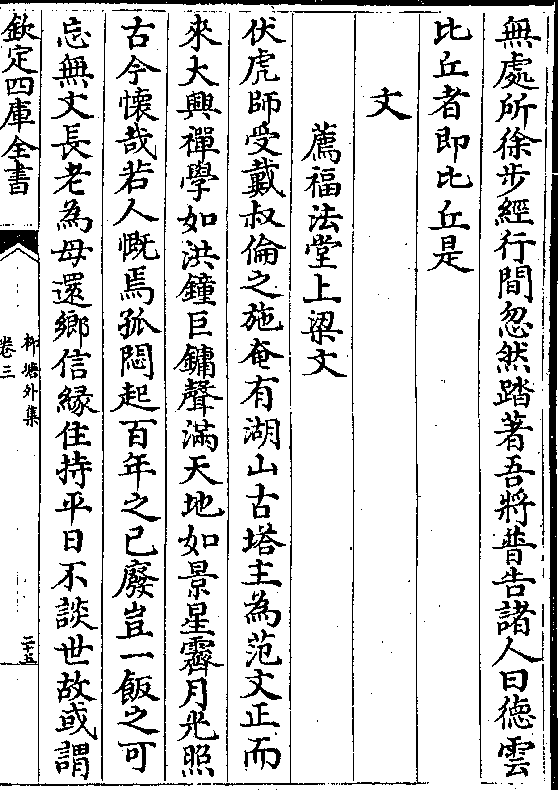 無處所徐步經行間忽然踏著吾將普告諸人曰德雲
比丘者即比丘是
文
薦福法堂上梁文
伏虎師受戴叔倫之施奄有湖山古塔主為范文正而
來大興禪學如洪鐘巨鏞聲滿天地如景星霽月光照
古今懷哉若人慨焉孤悶起百年之已廢豈一飯之可
忘無文長老為母還鄉信緣住持平日不談世故或謂
欽定四庫全書
柳塘外集
卷三
二十五